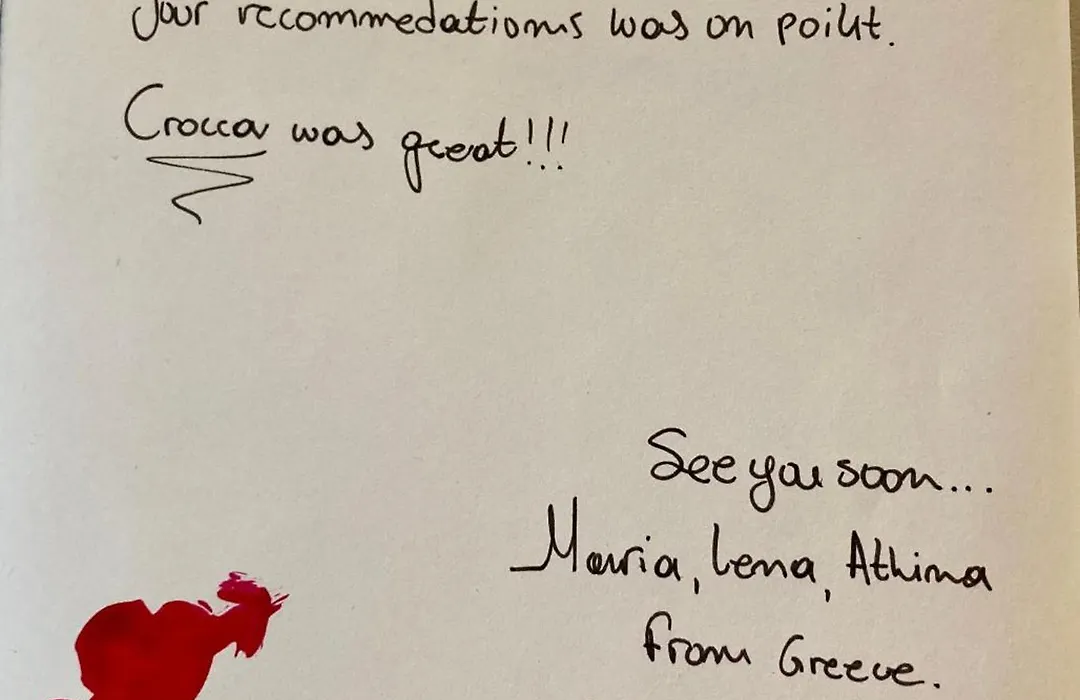 Your recommedations was on point.
Crocca was great!!!
See you soon...
Maria, Lena, Athina
from Greece.